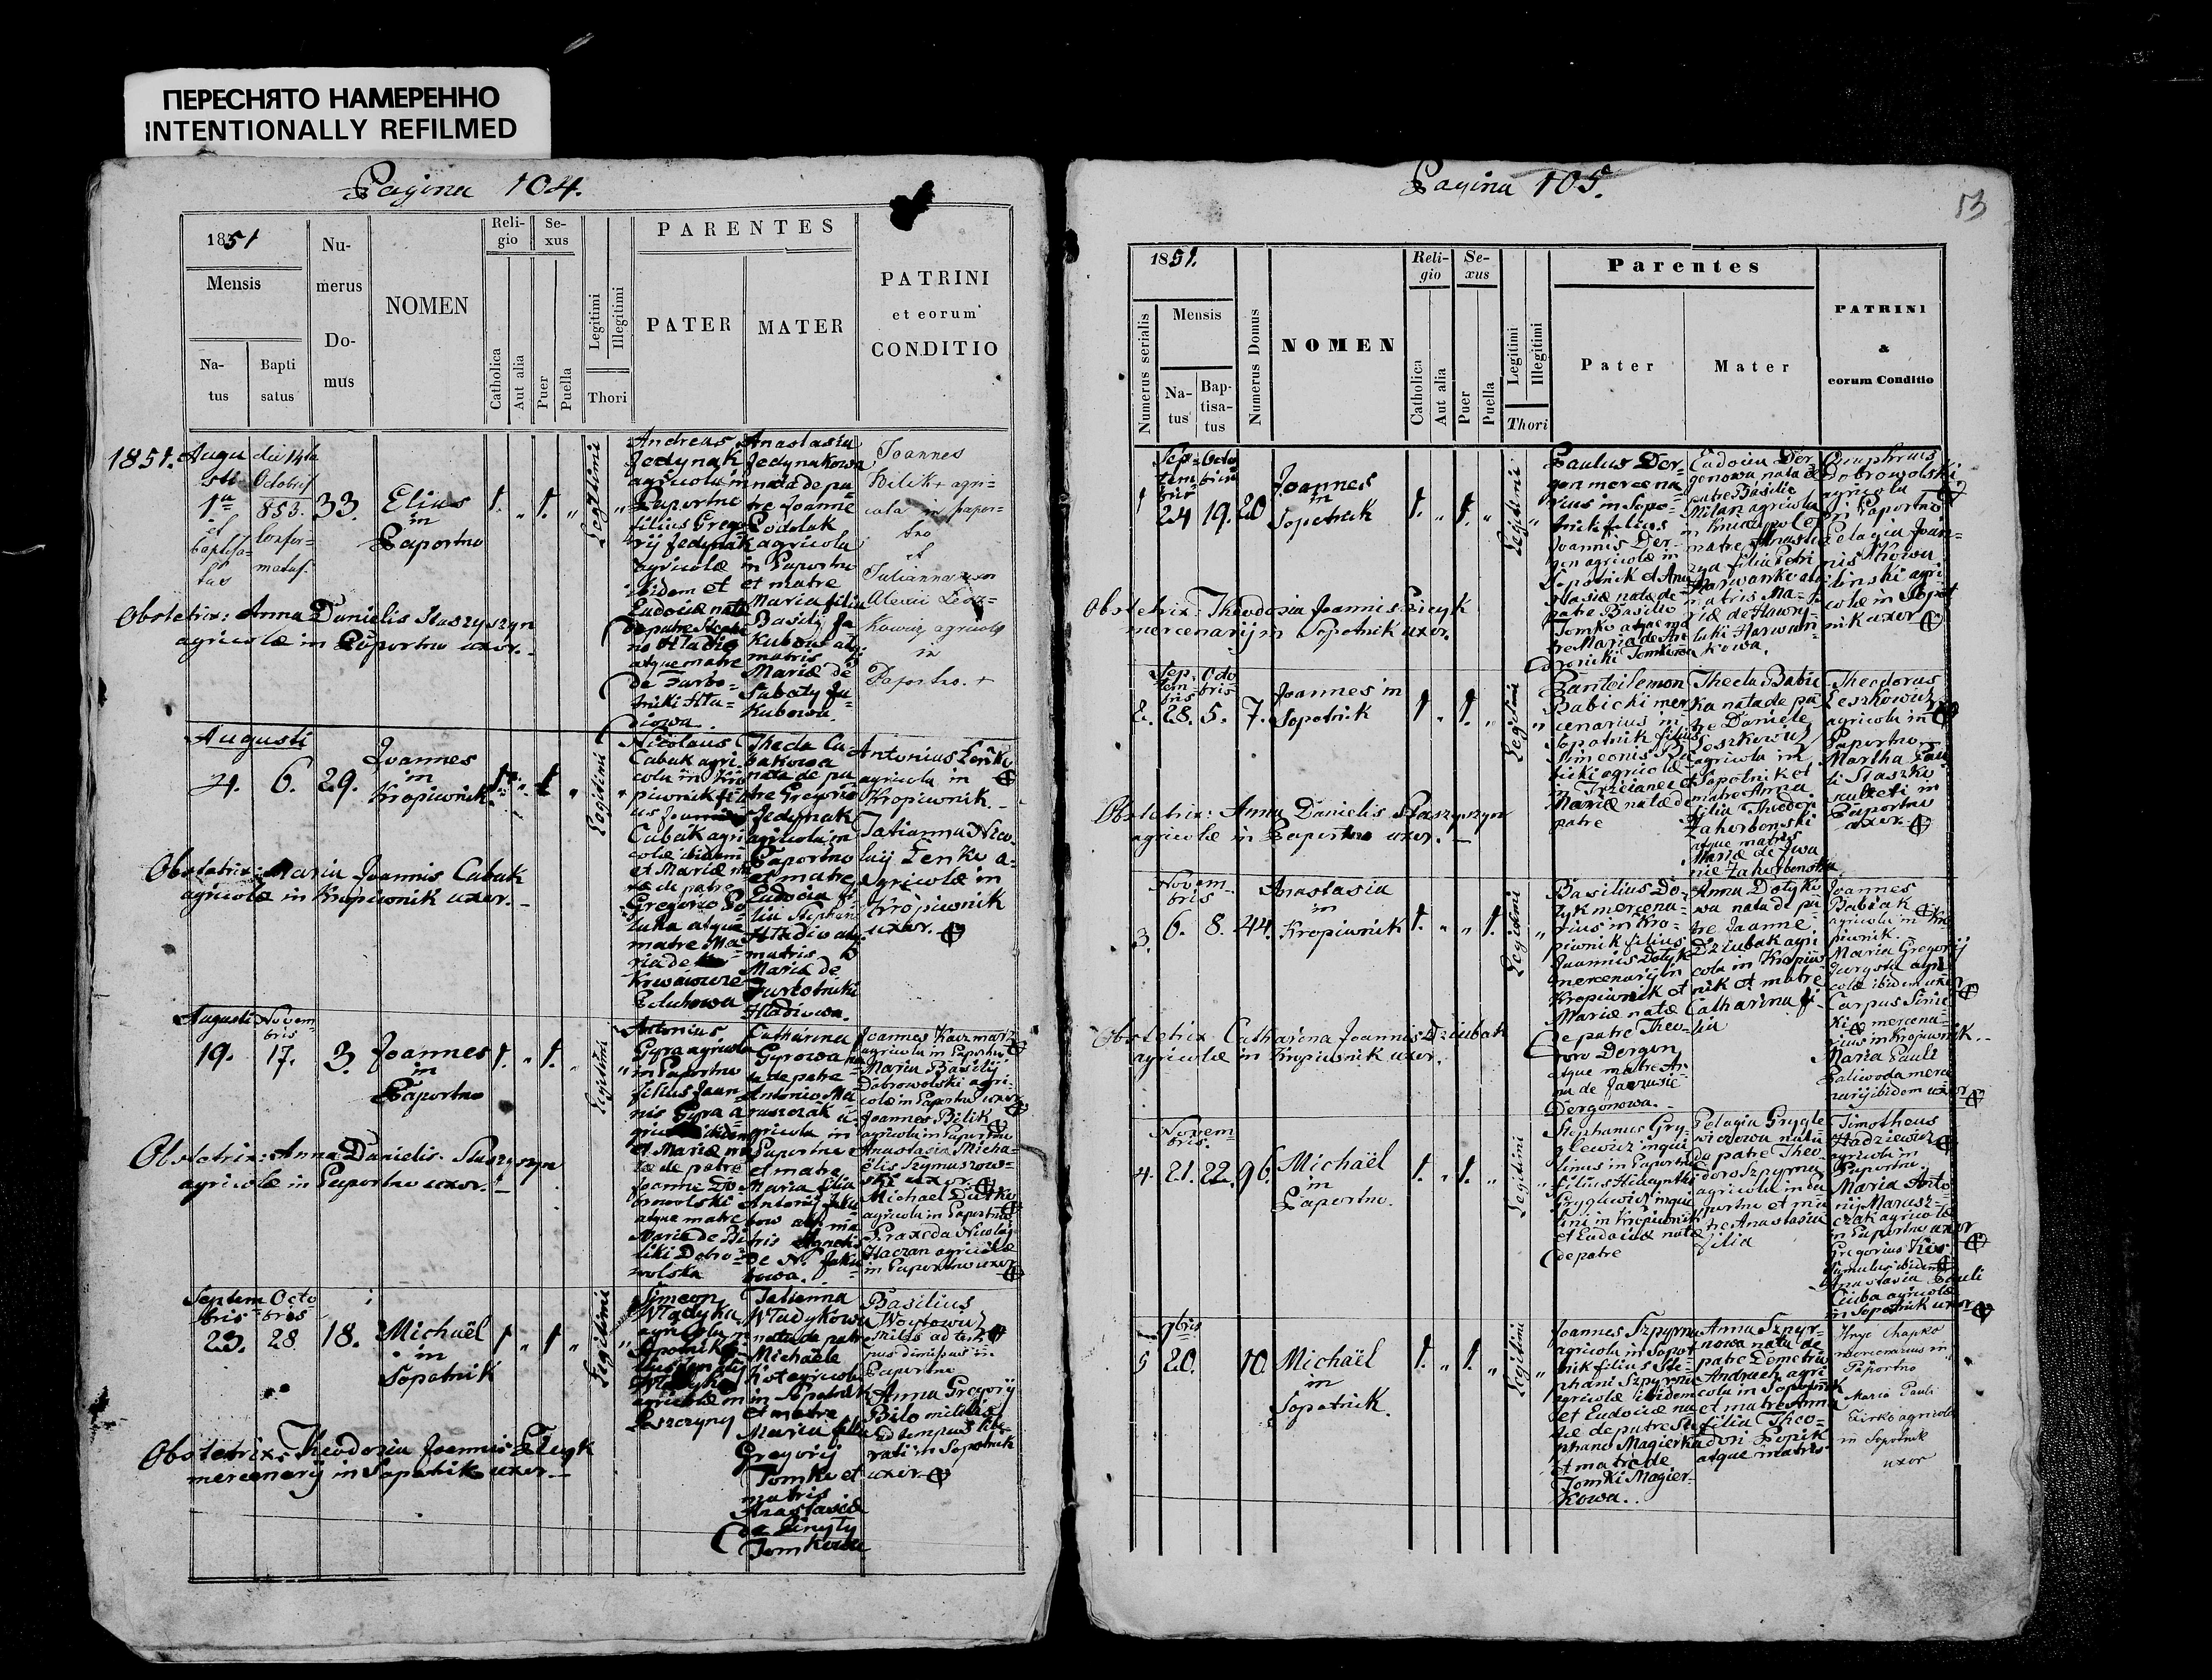 ПЕРЕСНЯТО НАМЕРЕННО
INTENTIONALLY REFILMED
Pagina 104.
1851
Mensis
Na-
tus
Bapti
satus
Nu-
merus
Do-
mus
NOMEN
Reli-
gio
Catholica
Aut alia
Se-
xus
Puer
Puella
Legitimi
Illegitimi
Thori
PARENTES
PATER
MATER
PATRINI
et eorum
CONDITIO
1851.
Augu
sti
1a
et
baptisa-
tus
die 14ta
Octobris
853.
confir-
matus.
33.
Elias
in
Paportno
1.
"
1.
"
Legitimi
"
Andreas
Jedynak
agricola in
Paportno
filius Grego
rij Jedynak
agricolæ
ibidem et
Eudociæ nata
de patre
atque matre
de Turbo-
Anastasia
Jedynakowa
nata de pa-
tre Joanne
agricola
in Paportno
et matre
Maria filia
Basilij Ja
Kubow atq:
matris
Mariæ de
Sabaty Ja-
Kubowa.
Joannes
Bilik + agri-
cola in papor-
tno
et
Julianna uxor
Alexii Lesz-
Kowicz agricola
in
Paportno. +
Obstetrix: Anna Danielis Staszyszyn
agricolæ in Paportno uxor.
Augusti
4.
6.
29.
Joannes
in
Kropiwnik
1.
"
1
"
Legitimi
"
Nicolaus
Cabak agri-
cola in Kro
piwnik fili-
us
Cabak agri
colæ ibidem
et Mariæ na
tæ de patre
Gregorio
atque
matre Ma-
ria de
Thecla Ca-
bakowa
nata de pa
tre Gregorio
Jedynak
agricola in
Paportno
et matre
Eudocia fi-
lia Stephani
Hladio atq:
matris
Maria de
Hladiowa.
Antonius Fenko
agricola in
Kropiwnik.
Tatianna Nico-
laij Fenko a-
gricolæ in
Kropiwnik
uxor.
Obstetrix: Maria Joannis Cabak
agricolæ in Kropiwnik uxor.
Augusti
19.
Novem-
bris
17.
3.
Joannes
in
Paportno
1.
"
1.
"
Legitimi
"
Antonius
Gyra agricola
in Paportno
filius Joan-
nis Gyra a
et Mariæ na
tæ de patre
Joanne Do
browolski
atque matre
Maria de Bi
liki Dobro-
wolska
Catharina
Gyrowa na
ta de patre
Antonio Ma
ruszczak a-
gricola in
Paportno
et matre
Maria filia
Antonij Jaku
bow atq: ma
tris Agnetis
de N. Jaku
bowa.
Joannes Kaczmarz
agricola in Paportno
Maria Basilij
Dobrowolski agri-
colæ in Paportno uxor
Joannes Bilik
agricola in Paportno
Anastasia Micha-
ëlis Szymuszow-
ski uxor.
Michael Dutko
agricola in Paportno
Praxeda Nicolaij
Haczan agricolæ
in Paportno uxor
Obstetrix: Anna Danielis Staszyszyn
agricolæ in Paportno uxor.
Septem
bris
23.
Octo
bris
28.
18.
Michaël
in
Sopotnik
1
"
1
"
Legitimi
"
Simeon
Wladyka
agricola in
Sopotnik
agricolæ in
Leszczyny
Tatianna
Wladykowa
nata de patre
Michaële
Kot agricola
in Sopotnik
et matre
Maria filia
Gregorij
Tomko et
matris
Anastasiæ
Tomkowa
Basilius
Woytowicz
miles ad tem
pus dimissus in
Paportno
Anna Gregorij
Bilo militis
ad tempus libe
rati in Sopotnik
uxor.
Obstetrix: Theodosia Joannis
mercenarij in Sopotnik uxor.
Pagina 105.
53
1851.
Numerus serialis
Mensis
Na-
tus
Bap-
tisa-
tus
Numerus Domus
NOMEN
Reli-
gio
Catholica
Aut alia
Se-
xus
Puer
Puella
Legitimi
Illegitimi
Thori
Parentes
Pater
Mater
PATRINI
&
eorum Conditio
1
Sep-
tem
bris
24
Octo
bris
19.
20
Joannes
in
Sopotnik
1.
"
1.
"
Legitimi
"
Paulus Der-
gen mercena
rius in Sopo-
tnik filius
Joannis Der-
gen agricolæ in
Sopotnik et Ana
stasiæ natæ de
patre Basilio
Tomko atque ma
tre Maria de An
Tomkowa
Eudocia Der
genowa nata de
patre Basilio
Milan agricola
in Kniazpol et
matre Anasta
zya filia Petri
matris Ma-
riæ de Hawry-
luki
Onuphrius
Dobrowolski
agricola
in Paportno
Pelagia Joan-
nis
agri
colæ in Sopot
nik uxor
Obstetrix: Theodosia Joannis
mercenarij in Sopotnik uxor.
2.
Sep-
tem
bris
28.
Octo
bris
5.
7.
Joannes in
Sopotnik
1
"
1.
"
Legitimi
"
Pantilemon
Babicki mer
cenarius in
Sopotnik filius
Simeonis Ba
bicki agricolæ
in Trzcianec et
Mariæ natæ de
patre
Thecla Babic
ka nata de pa
tre Daniele
Leszkowicz
agricola in
Sopotnik et
matre Anna
filia Theodori
atque matris
Mariæ de Iwa
nie
Theodorus
Leszkowicz
agricola in
Paportno
Martha Pau
li Staszko
sculteti in
Paportno
uxor.
Obstetrix: Anna Danielis Staszyszyn
agricolæ in Paportno uxor.
3.
Novem-
bris
6.
8.
44.
Anastasia
in
Kropiwnik
1.
"
"
1.
Legitimi
"
Basilius Do-
tyk mercena-
rius in Kro-
piwnik filius
Joannis Dotyk
mercenarij in
Kropiwnik et
Mariæ natæ
de patre Theo-
doro Dergen
atque matre An-
na de
Dergenowa.
Anna Dotyko
wa nata de pa-
tre Joanne
Dziubak agri
cola in Kropiw
nik et matre
Catharina fi-
lia
Joannes
Babiak
agricola in Kro
piwnik.
Maria Gregorij
agri-
colæ ibidem uxor
Carpus
mercena-
rius in Kropiwnik.
Maria Pauli
Paliwoda merce
narij ibidem uxor
Obstetrix Catharina Joannis Dziubak
agricolæ in Kropiwnik uxor.
4.
Novem-
bris.
21.
22.
96.
Michaël
in
Paportno.
1.
"
1.
"
Legitimi
"
Stephanus Gry-
glewicz inqui
linus in Paportno
filius Hiacynthi
Gryglewicz inqui
lini in Kropiwnik
et Eudociæ natæ
de patre
Pelagia Grygle-
wiczowa nata
de patre Theo-
doro Szpyrna
agricola in Pa
portno et ma
tre Anastasia
filia
Timotheus
Hadziewicz
agricola in
Paportno.
Maria Anto
nij Marusz-
czak agricolæ
in Paportno uxor
Gregorius Kos
famulus ibidem
Anastasia Pauli
Ciuba agricolæ
in Sopotnik uxor
5
9bris
20.
10.
Michaël
in
Sopotnik.
1.
"
1.
"
Legitimi
"
Joannes Szpyrna
agricola in Sopot
nik filius Ste-
phani Szpyrna
agricolæ ibidem
et Eudociæ na
tæ de patre Ste
phano Magierka
et matre de
Tomki Magier-
kowa.
Anna Szpyr-
nowa nata de
patre Demetrio
Andruch agri
cola in Sopotnik
et matre Anna
filia Theo-
dori Popik
atque matris
Hryc Chapko
mercenarius in
Paportno
Maria Pauli
Firko agricolæ
in Sopotnik
uxor